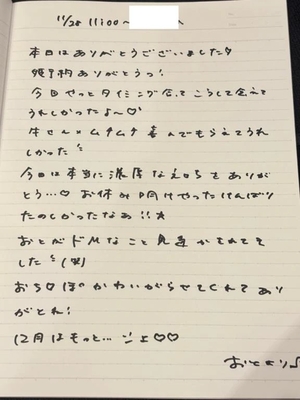 11/28 11:00〜 へ
本日はありがとうございました
ありがとうっ!
今日やっとタイミング合ってこうして会えて
うれしかったよ〜♡
ムチムチ喜んでもらえてうれ
しかった
今日は本当に濃厚なえちちをありが
とう…♡ お休み明けやったけんばり
たのしかったなぁ!!★
おとがドMなこと見透かされてま
した(笑)
おち○ぽかわいがらせてくれてあり
がとね!
12月はもっと…ジょ♡♡
おとより♪